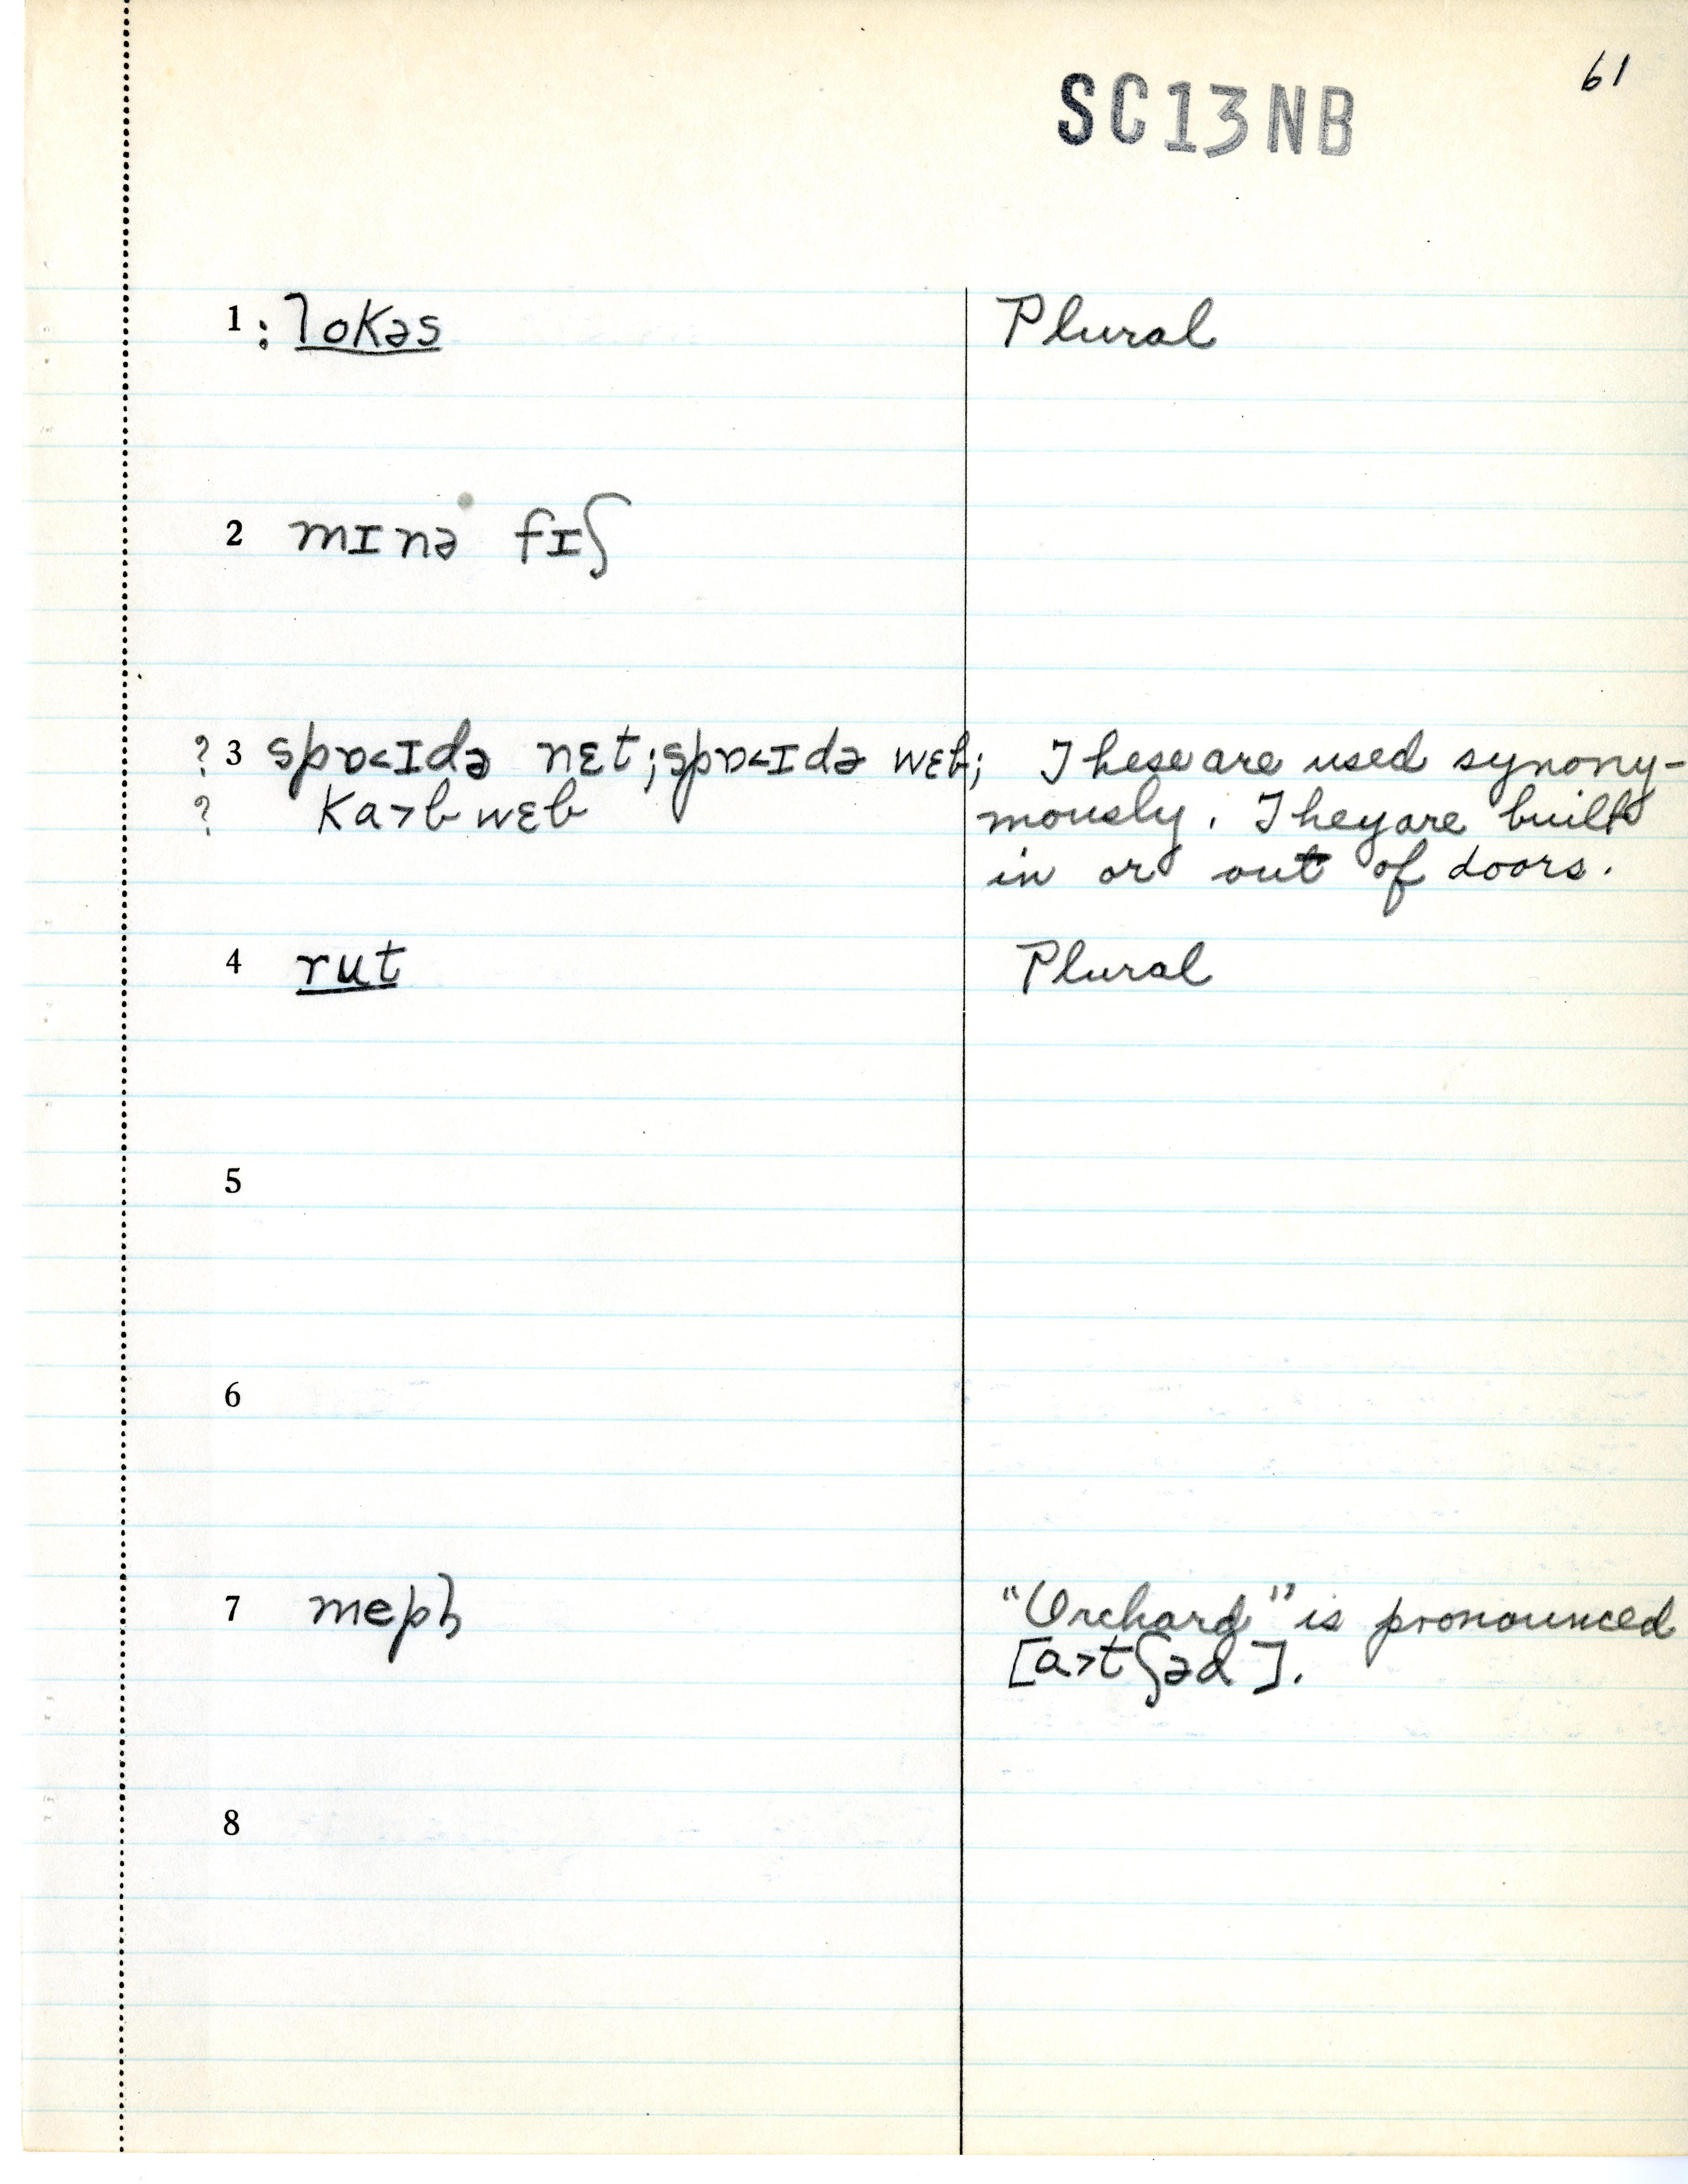 61
SC13NB
1 : lokəs Plural
2 mɪnə fɪʃ
? 3 spɒ<ɪdə nɛt; spɒ<ɪdə wɛb; These are used synony-
? ka>b wɛb mously. They are built
in or out of doors.
4 rut Plural
5
6
7 mepɫ "Orchard" is pronounced
[a>tʃəd].
8